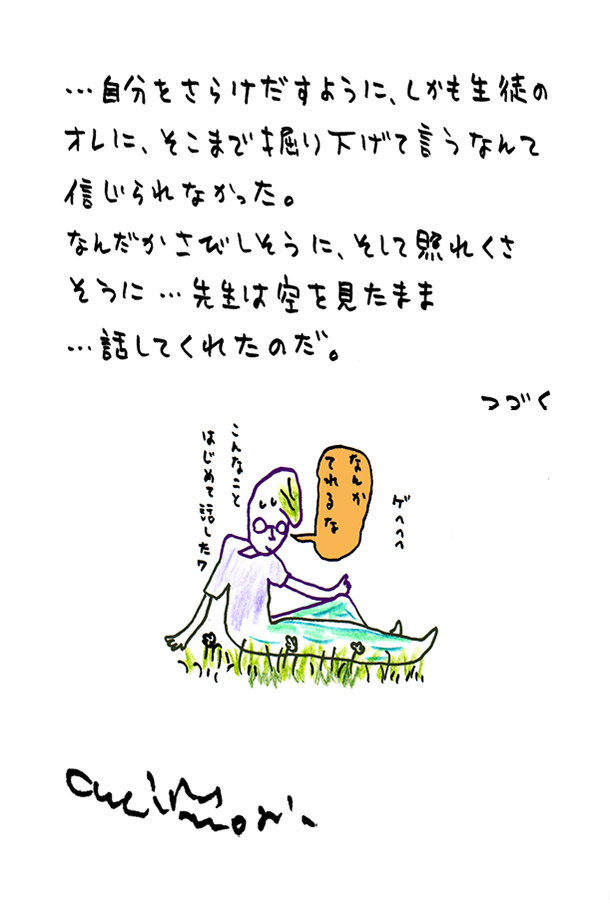 …自分をさらけだすように、しかも生徒の
オレに、そこまで掘り下げて言うなんて
信じられなかった。
なんだかさびしそうに、そして照れくさ
そうに…先生は空を見たまま
…話してくれたのだ。
つづく
ゲへへへ
なんか
てれるな
こんなこと
はじめて話したワ